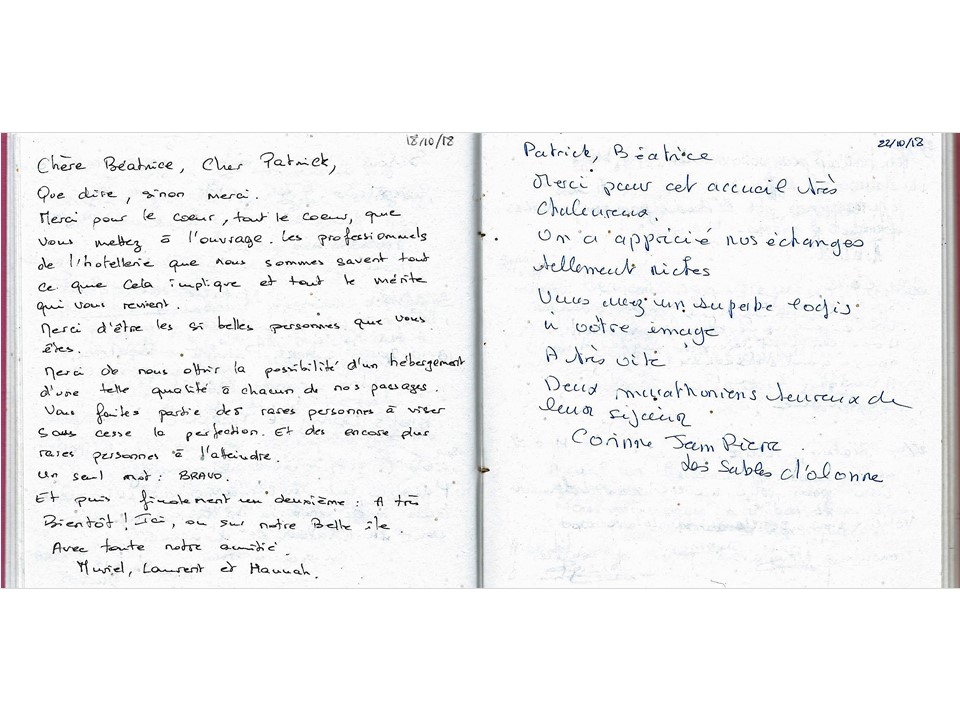 18/10/18
Chère Béatrice, Cher Patrick,
Que dire, sinon merci.
Merci pour le coeur, tout le coeur, que
vous mettez à l'ouvrage. Les professionnels
de l'hotellerie que nous sommes savent tout
ce que cela implique et tout le mérite
qui vous revient.
Merci d'être les si belles personnes que vous
êtes.
Merci de nous offrir la possibilité d'un hébergement
d'une telle qualité à chacun de nos passages.
Vous faites partie des rares personnes à viser
sans cesse la perfection. Et des encore plus
rares personnes à l'atteindre.
Un seul mot : BRAVO.
Et puis finalement un deuxième : A très
Bientôt ! Ici, ou sur notre Belle île.
Avec toute notre amitié.
Muriel, Laurent et Hannah.
22/10/18
Patrick, Béatrice
Merci pour cet accueil très
chaleureux.
On a apprécié nos échanges
tellement riches
Vous avez un superbe logis
à vôtre image
A très vite
Deux marathoniens heureux de
leur séjour
Corinne Jean Pierre
des Sables d'olonne